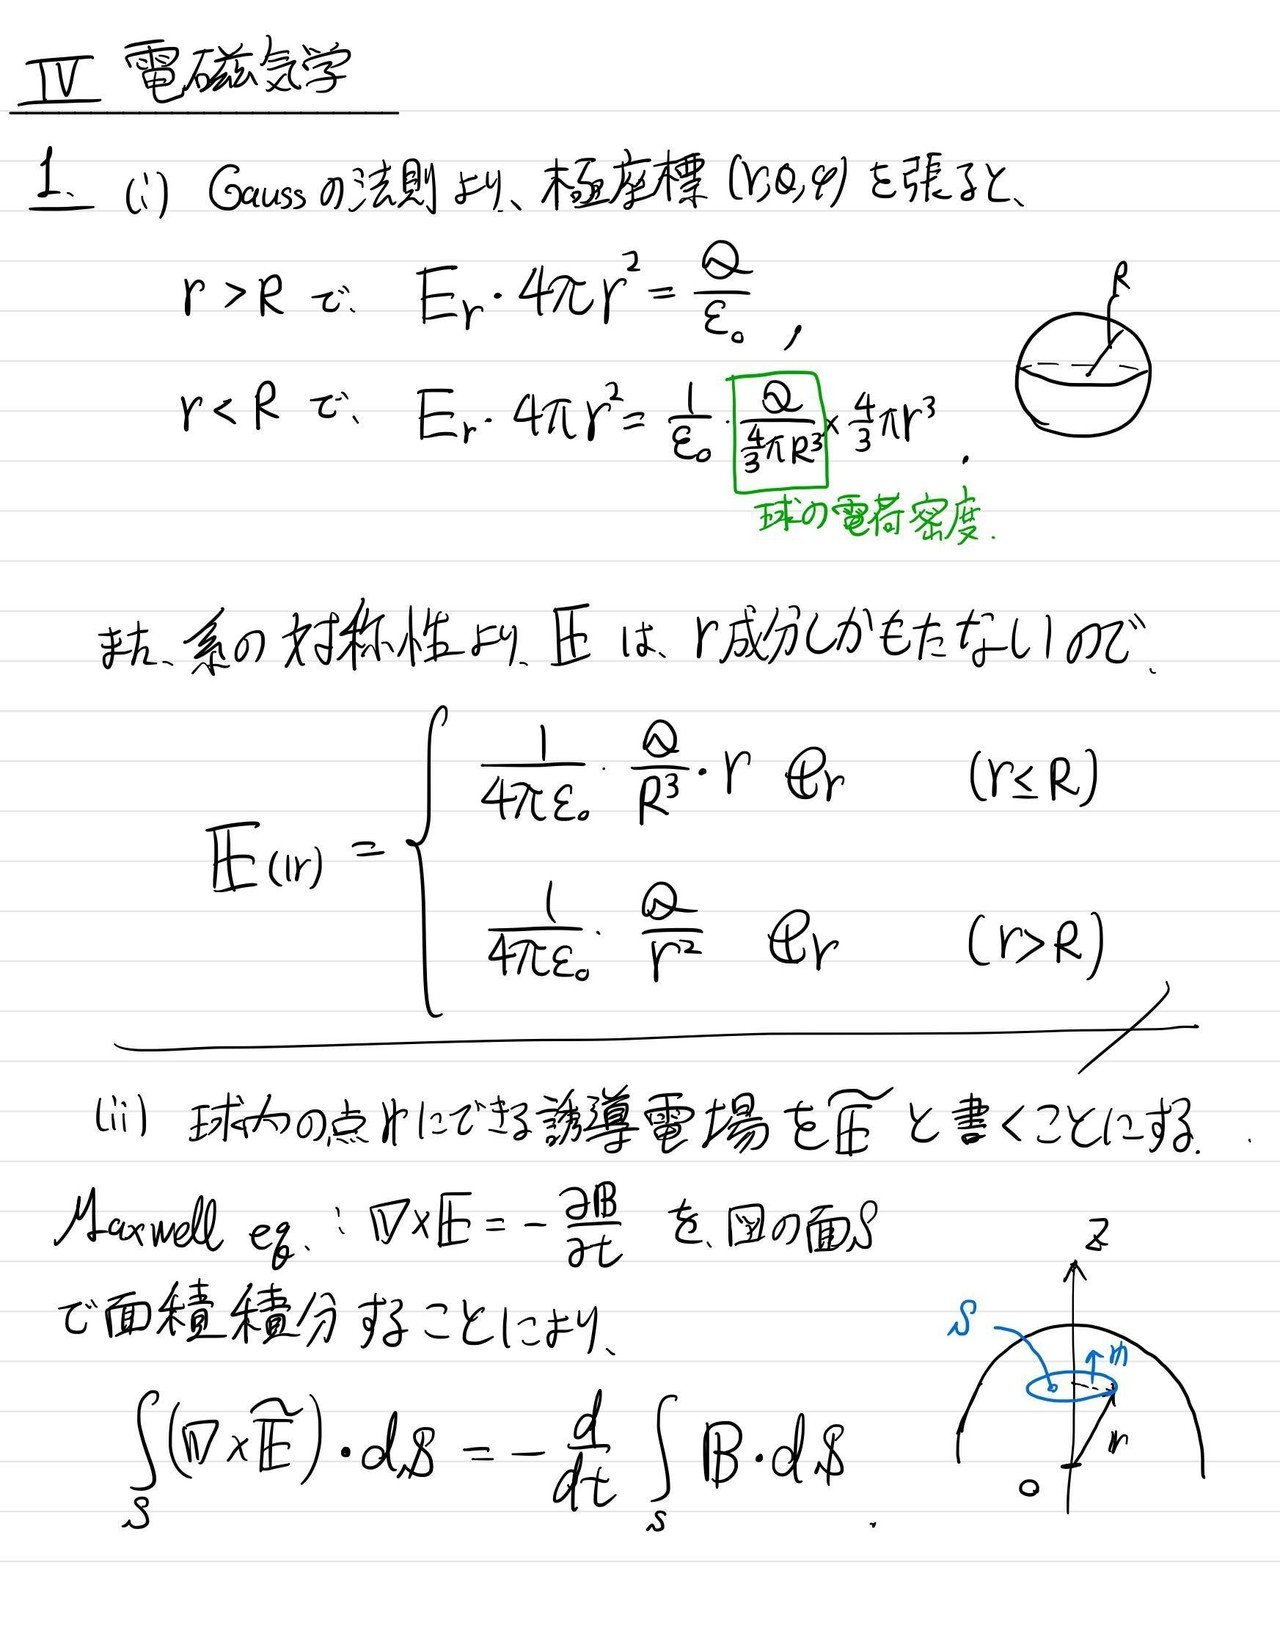 IV 電磁気学
1. (i) Gaussの法則より、極座標 (r,θ,φ) を張ると、
r > R で、 E_r · 4πr² = Q/ε₀ ,
r < R で、 E_r · 4πr² = 1/ε₀ · Q/(4/3 πR³) × 4/3 πr³ .
球の電荷密度.
R
また、系の対称性より、𝔼 は、r成分しかもたないので、
𝔼(𝕣) = { 1/(4πε₀) · Q/R³ · r 𝕖_r (r ≤ R)
1/(4πε₀) · Q/r² 𝕖_r (r > R)
(ii) 球内の点𝕣にできる誘導電場を 𝔼̃ と書くことにする.
Maxwell eq. : ∇×𝔼 = - ∂𝔹/∂t を、図の面S
で面積積分することにより、
∫_S (∇×𝔼̃)·d𝕊 = - d/dt ∫_S 𝔹·d𝕊 .
z
S
𝕟
𝕣
O